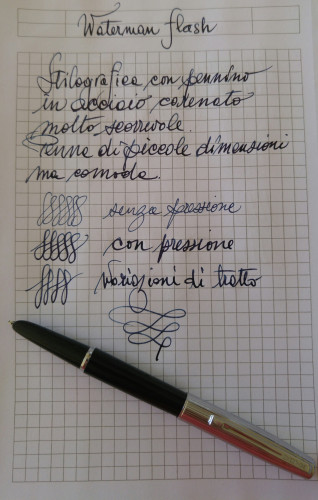 Waterman flash
Stilografica con pennino
in acciaio carenato
molto scorrevole.
Penna di piccole dimensioni
ma comoda.
senza pressione
con pressione
variazioni di tratto